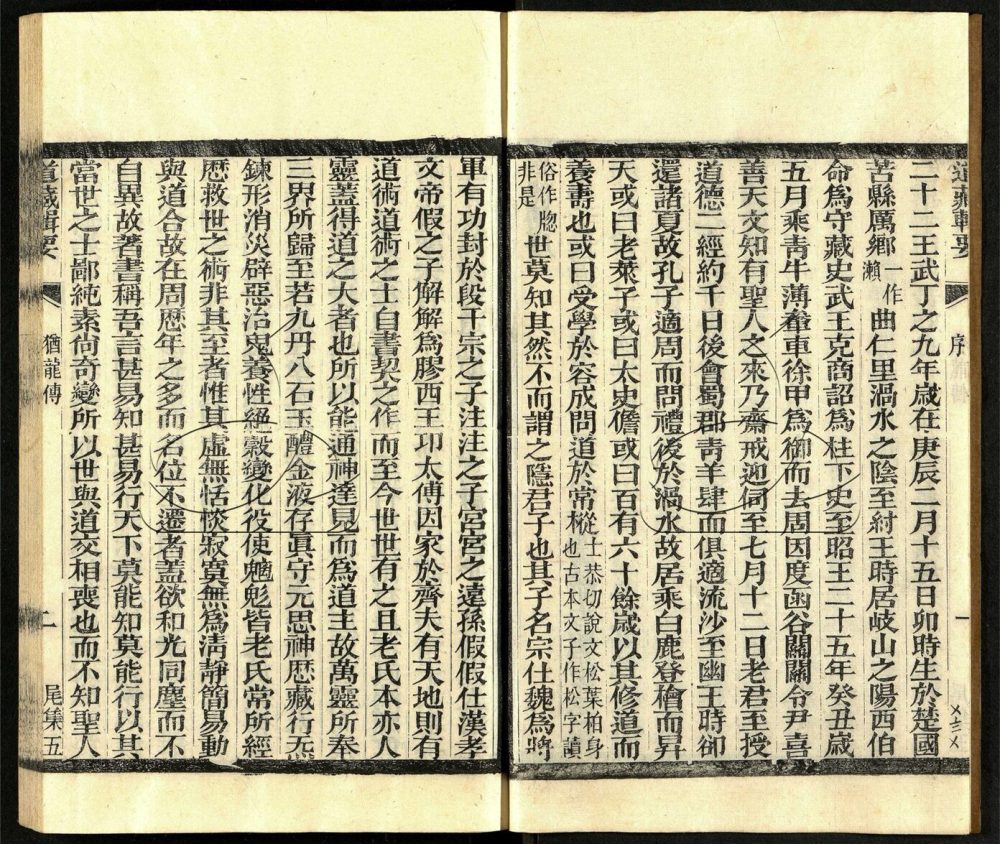 道藏輯要
序
一
二十二王武丁之九年歲在庚辰二月十五日卯時生於楚國
苦縣厲鄉一作瀨曲仁里渦水之陰至紂王時居岐山之陽西伯
命爲守藏史武王克商詔爲柱下史至昭王二十五年癸丑歲
五月乘靑牛薄軬車徐甲爲御而去周因度函谷關關令尹喜
善天文知有聖人之來乃齋戒迎伺至七月十二日老君至授
道德二經約千日後會蜀郡靑羊肆而俱適流沙至幽王時卻
還諸夏故孔子適周而問禮後於渦水故居乘白鹿登檜而昇
天或曰老萊子或曰太史儋或曰百有六十餘歲以其修道而
養壽也或曰受學於容成問道於常樅士恭切說文松葉柏身也古本文子作松字讀
俗作牎非是世莫知其然不而謂之隱君子也其子名宗仕魏爲將
軍有功封於段干宗之子注注之子宮宮之遠孫假假仕漢孝
文帝假之子解解爲膠西王卭太傅因家於齊夫有天地則有
道術道術之士自書契之作而至今世世有之且老氏本亦人
靈蓋得道之大者也所以能通神達見而爲道主故萬靈所奉
三界所歸至若九丹八石玉醴金液存眞守元思神歷藏行炁
鍊形消災辟惡治鬼養性絕穀變化役使魑魅皆老氏常所經
歷救世之術非其至者惟其虛無恬惔寂寞無爲淸靜簡易動
與道合故在周歷年之多而名位不遷者蓋欲和光同塵而不
自異故著書稱吾言甚易知甚易行天下莫能知莫能行以其
當世之士鄙純素尙奇變所以世與道交相喪也而不知聖人
道藏輯要
猶龍傳
二
尾集五